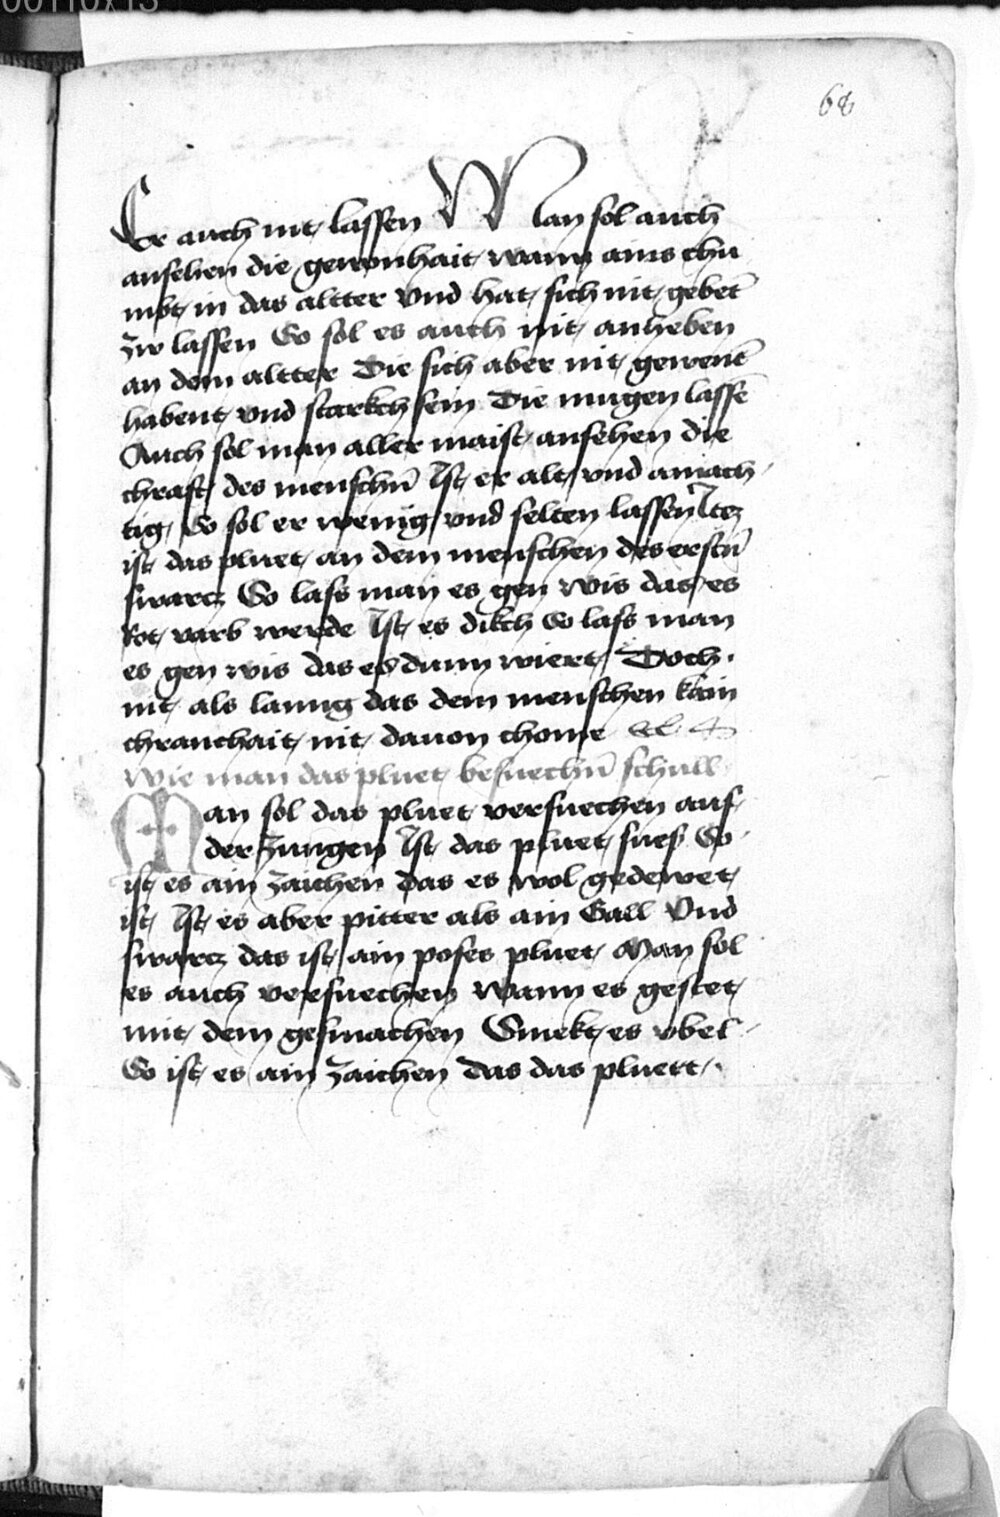 68
Er auch nit lassen Man sol auch
ansehen die gewonhait wann ains chu
mbt in das altter vnd hat sich nit gebet̄
zw lassen So sol es auch nit anheben
an dem altter Die sich aber nit gewent̄
habent vnd starkch sein Die mugen lassē
Auch sol man aller maist ansehen die
chraft des menschn̄ Ist er alt vnd amach
tig So sol er wenig vnd selten lassen Itez
ist das pluet an dem menschen des erstn̄
swarcz So lass man es gen wis das es
Rot varb werde Ist es dikch So lass man
es gen wis das es dunn wiert Doch
nit als lanng das dem menschen kain
chranchait nit dauon chome
Wie man das pluet besuechn̄ schull
Man sol das pluet versuechen auf
der zungen Ist das pluet sues So
ist es ain zaichen das es wol gedewet
ist Ist es aber pitter als ain Gall Vnd
swarcz das ist ain poses pluet Man sol
es auch versuechen wann es gestet
mit dem gesmachen Smekt es vbel
So ist es ain zaichen das das pluett